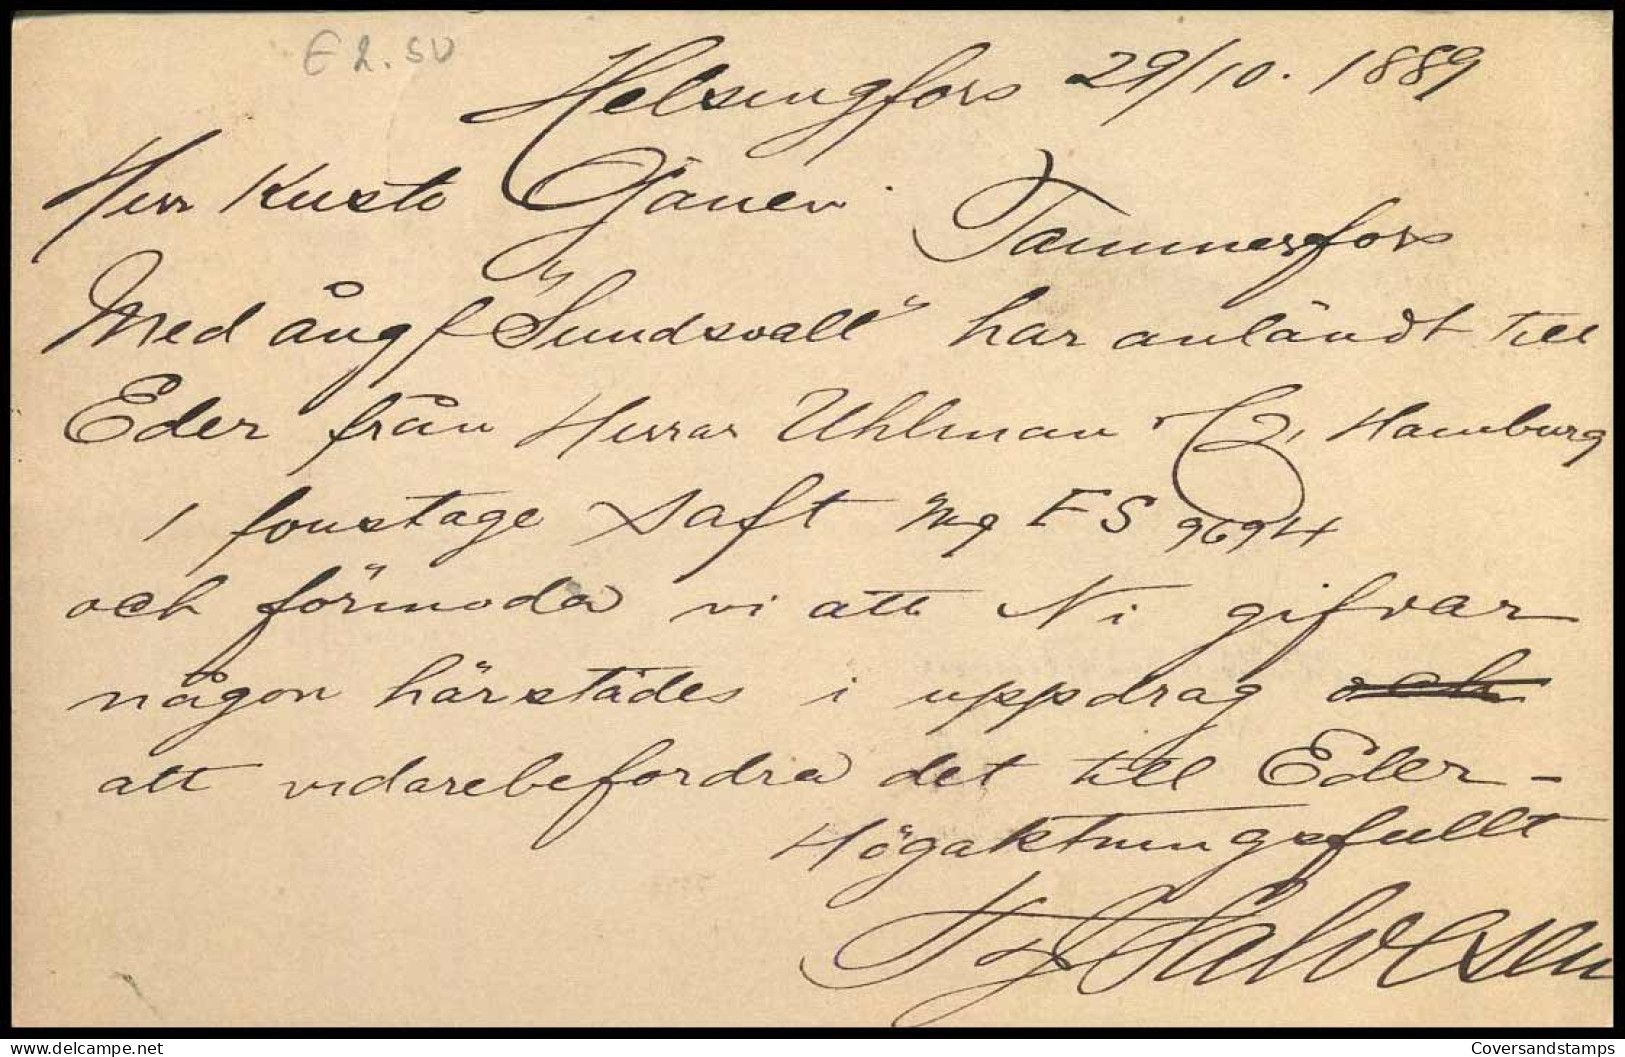 € 2.50
Helsingfors 29/10. 1889
Herr Kusto Ojanen
Tammerfors
Med ångf "Sundsvall" har anländt till
Eder från Herrar Uhlman Hamburg
1 foustage Saft Mg FS 9694
och förmoda vi att Ni gifvar
någon härstädes i uppdrag och
att vidarebefordra det till Eder -
Högaktningsfullt
Salvesen
delcampe.net
Coversandstamps